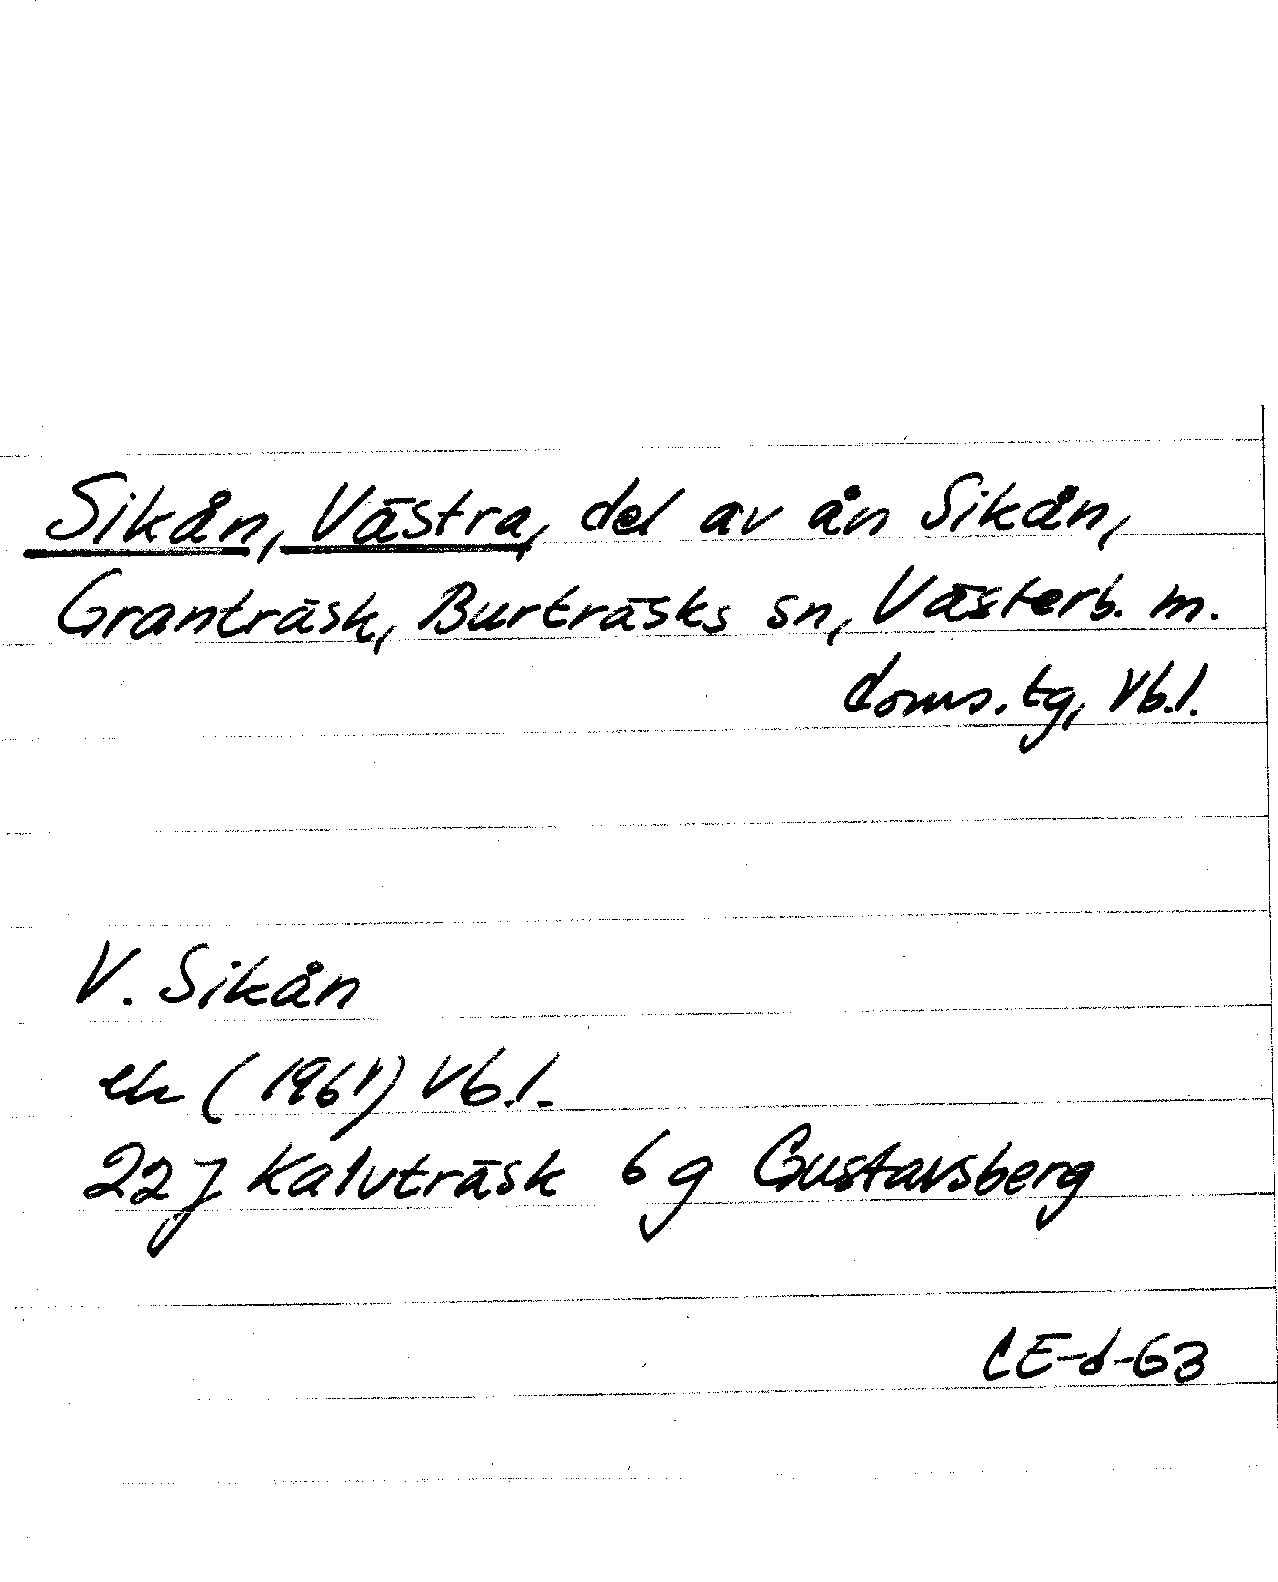 Sikån, Västra, del av ån Sikån,
Granträsk, Burträsks sn, Västerb. m.
doms. tg, Vb.l.
V. Sikån
ek (1961) Vb.l.
22 J Kalvträsk 6 g Gustavsberg
CE-d-63